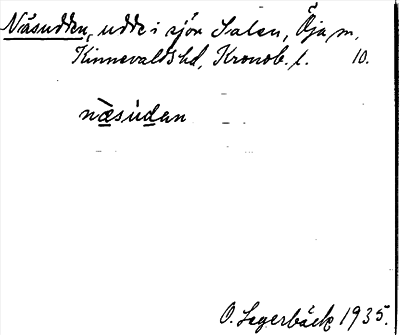 Näsudden, udde i sjön Salen, Öja sn,
Kinnevalds hd, Kronob. l. 10.
næsúdan
O. Lagerbäck 1935.